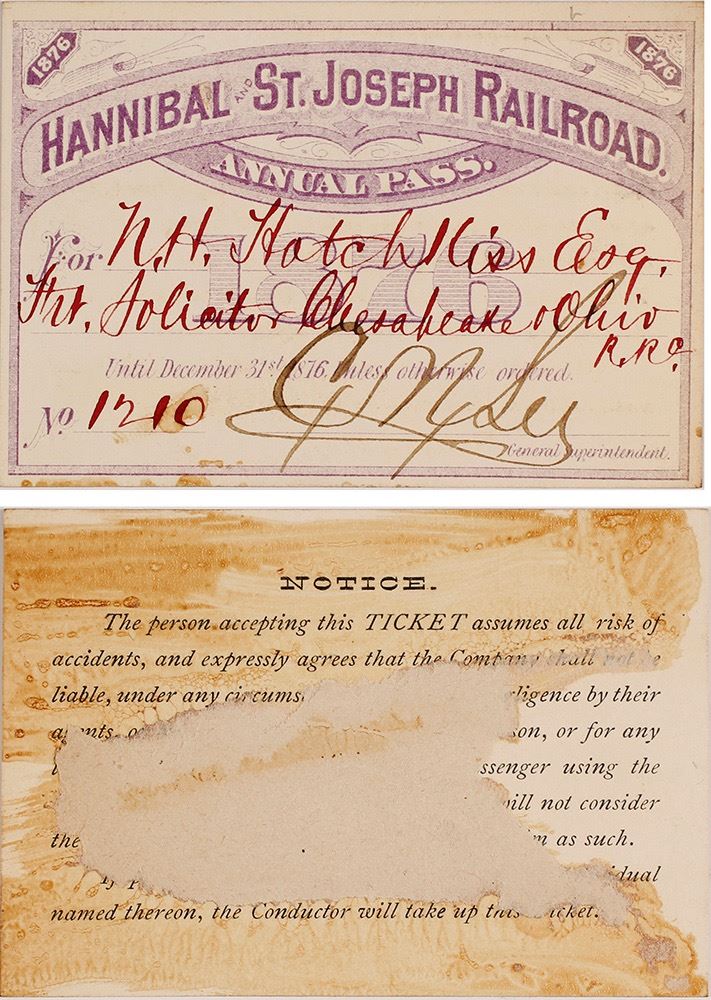 1876
1876
HANNIBAL AND ST. JOSEPH RAILROAD.
ANNUAL PASS.
1876
For N.H. Hotchkiss Esq.
Frt. Solicitor Chesapeake & Ohio
R.Rd.
Until December 31st 1876, Unless otherwise ordered.
No 1210
General Superintendent.
NOTICE.
The person accepting this TICKET assumes all risk of
accidents, and expressly agrees that the Company shall not be
liable, under any circums
ligence by their
agents, o
son, or for any
ssenger using the
will not consider
the
m as such.
dual
named thereon, the Conductor will take up this ticket.